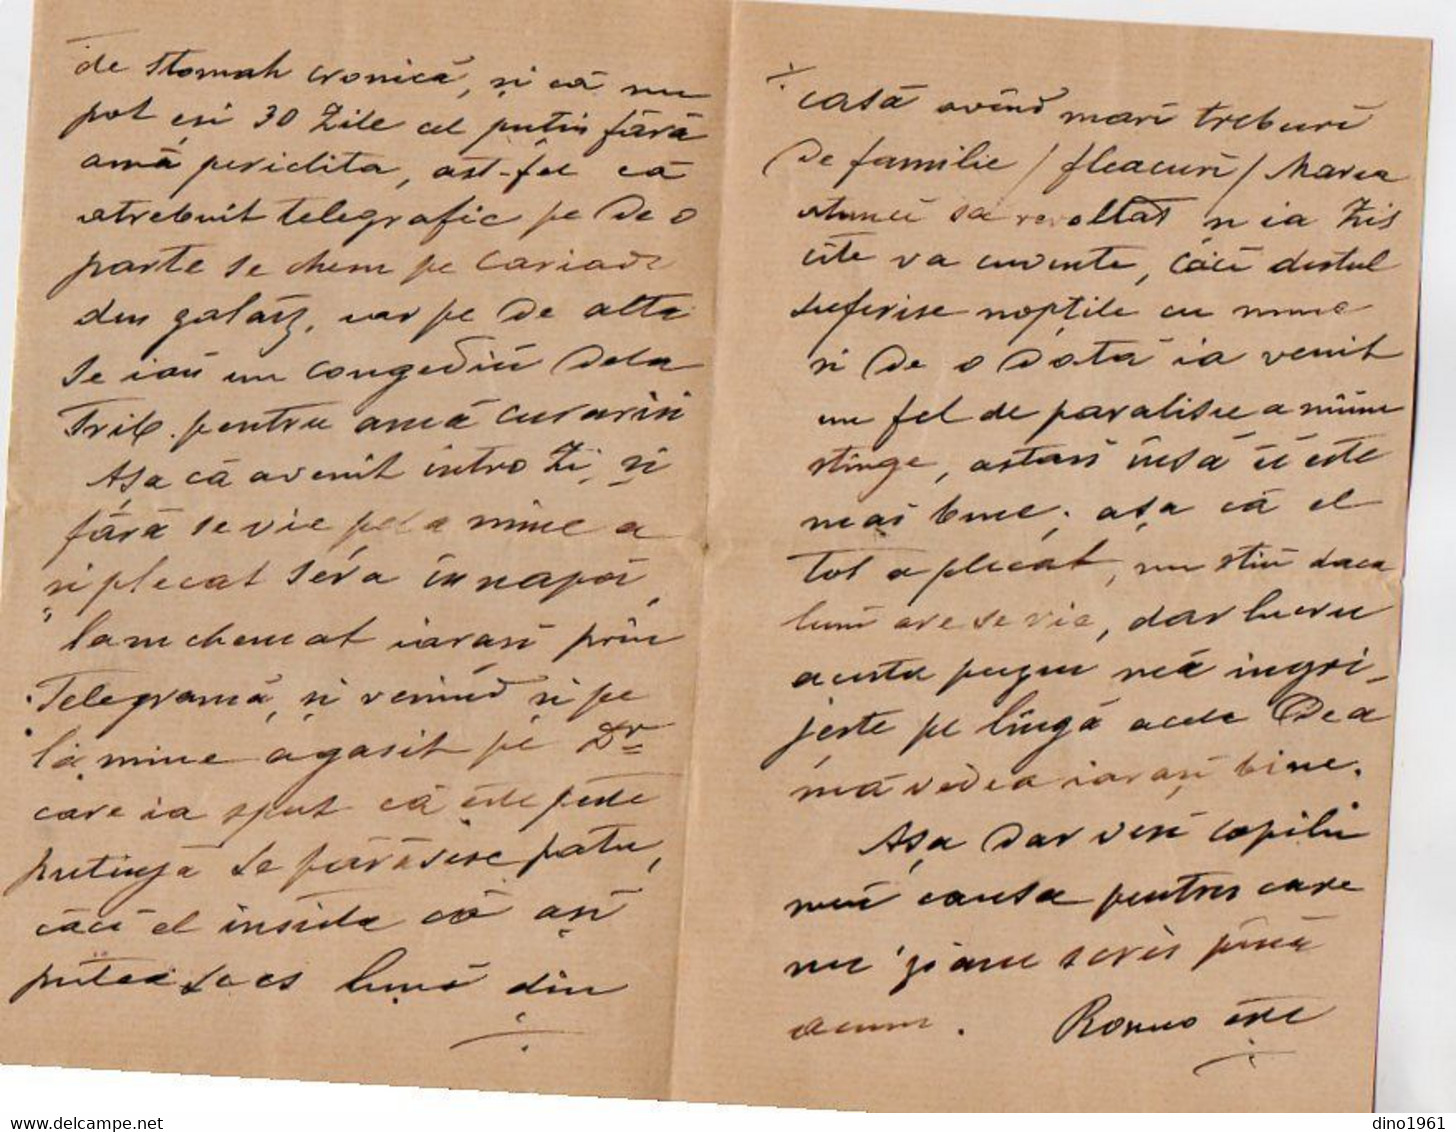 de stomah cronică, și că nu
pot eși 30 Zile cel puțin fără
amă periclita, ast-fel că
atrebuit telegrafic pe de o
parte se chem pe Cariadi
din galatz, iar pe de alta
se iau un congediu dela
Trib. pentru amă cur
Așa că avenit intro Zi, și
fără se vie pela mine a
și plecat séra în napoi,
lam chemat iarași prin
Telegramă, și venind și pe
la mine agasit pe Dr
care ia spus că este peste
putință se părăsesc patu,
căci el insista că ași
putea se es lună din
casă avînd mari treburi
de familie / fleacuri / Marea
atunci sa revoltat și ia Zis
cîte va cuvinte, căci destul
suferise nopțile cu mine
și de o dată ia venit
un fel de paralisie a mîinei
stinge, astasi însă îi este
mai bine, așa că el
tot a plecat, nu știu daca
luni are se vie, dar lucru
acesta me îngri-
jeste pe lîngă acela de a
mă vedea iarași bine.
Așa dar vezi copilu
meu causa pentru care
nu ți am scris pînă
acum. este
dino1961